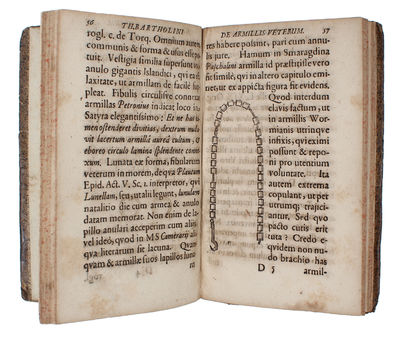 56 TH. BARTHOLINI
rogl. c. de Torq. Omnium autem
communis & forma & usus esse po-
tuit. Vestigia similia supersunt in
anulo gigantis Islandici, qui ea fi
laxitate, ut armillam de facile sup-
pleat. Fibulis circulisve connexas
armillas Petronius indicat loco in
Satyra elegantissimo: Et ne has ta-
men ostenderet divitias, dextrum nuda-
vit lacertum armillâ aureâ cultum, &
eboreo circulo lamina splendente conne-
xum. Lunata ex forma, fibularum
veterum in morem, de qua Plautum
Epid. Act. V. Sc, 1. interpretor, qui
Lunellam, seu, ut alii legunt, lunulam
natalitio die cum armea & anulo
datam memorat. Non enim de la-
pillo anulari acceperim cum aliis
vel ideò, quod in MS Camerarii ali-
qua literarum sit lacuna. Quam-
quam & armillæ suos lapillos hunc
in
DE ARMILLIS VETERUM. 57
tes habere posint, pari cum annu-
lis jure. Hamum in Smaragdina
Paschalini armilla id præstitisse vero
fit simile, qui in altero capitulo emi-
net, ut ex appicta figura fit evidens.
Qvod interdum
clavis factum, ut
in armillis Wor-
mianis utrinqve
infixis, qvi eximi
possunt & repo-
ni pro utentium
voluntate. Ita
autem extrema
copulant, ut per
cutumq; trajici-
antur. Sed quo
pacto cutis erit
tuta? Credo e-
qvidem non nu-
do brachio has
D 5 armil-